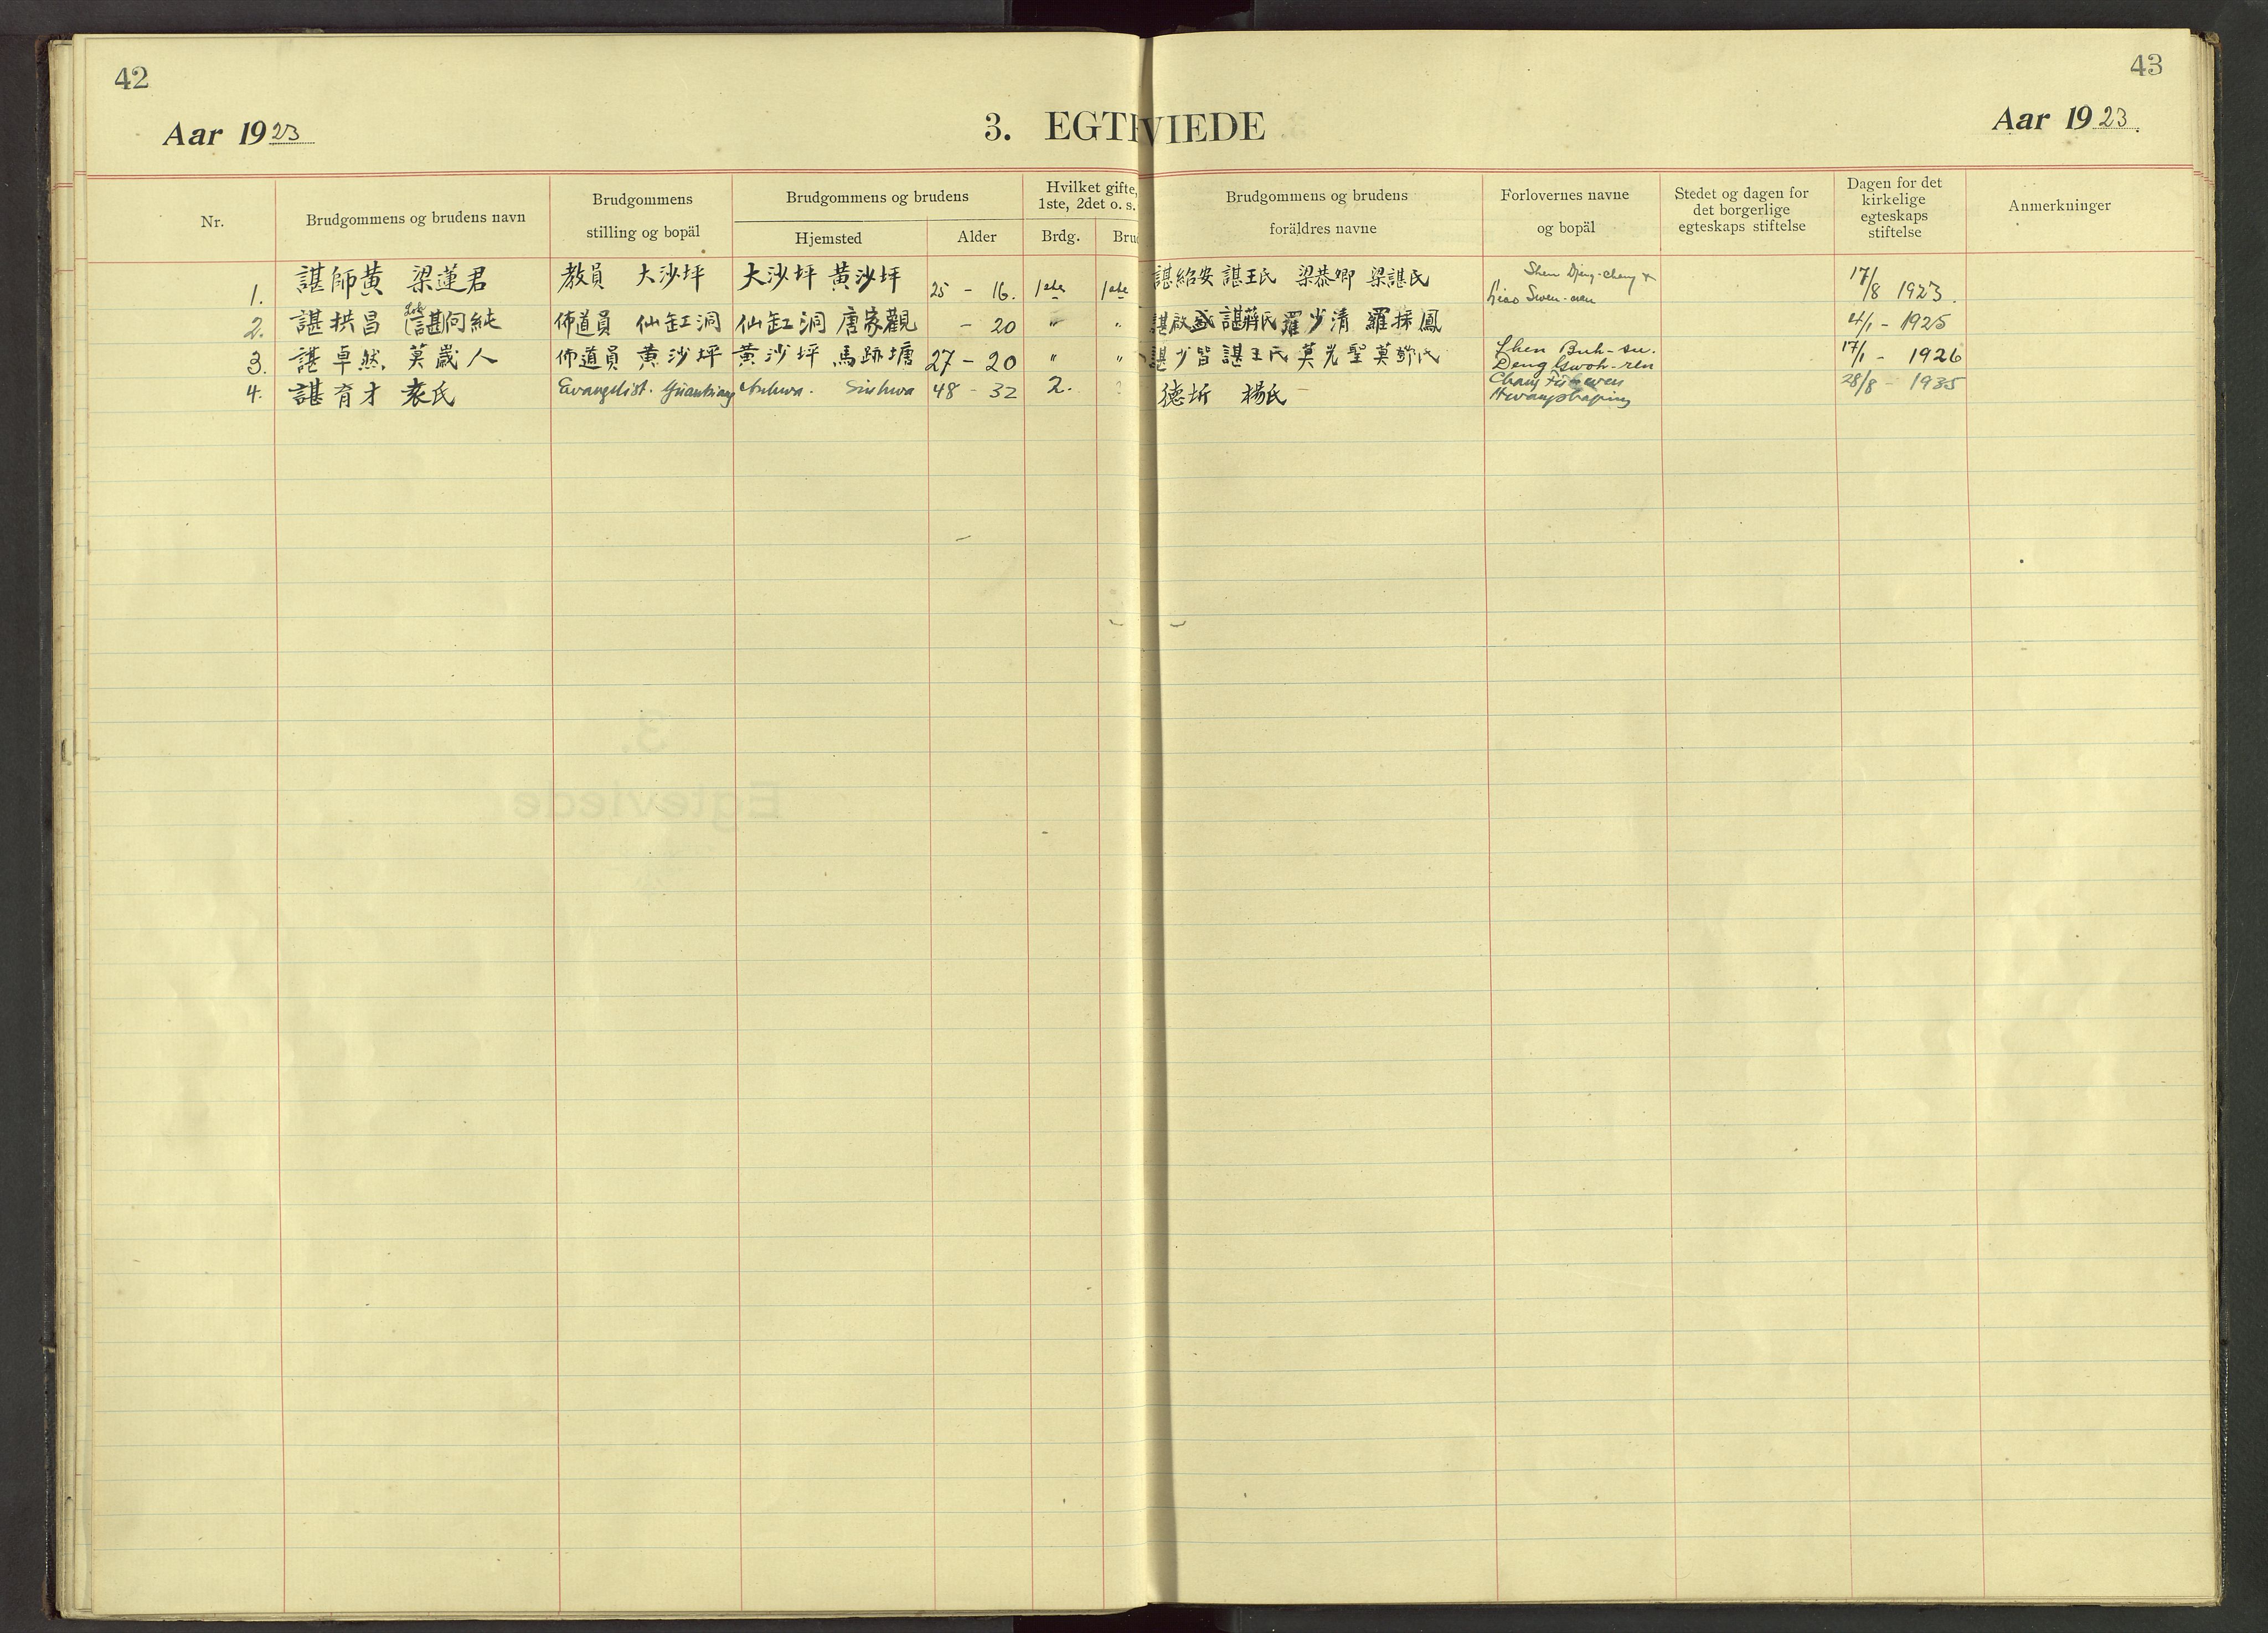 42
43
Aar 1923
3. EGTEVIEDE
Aar 1923.
Nr.
Brudgommens og brudens navn
Brudgommens
stilling og bopäl
Brudgommens og brudens
Hjemsted
Alder
Hvilket gifte,
1ste, 2det o. s.
Brdg.
Brud
Brudgommens og brudens
foräldres navne
Forlovernes navne
og bopäl
Stedet og dagen for
det borgerlige
egteskaps stiftelse
Dagen for det
kirkelige
egteskaps
stiftelse
Anmerkninger
1. 諶師黄 梁蓮君 教員 大沙坪 大沙坪 黄沙坪 25 - 16. 1ste 1ste 諶紹安 諶王氏 梁恭卿 梁諶氏 Shen Djeng-chang & Liao Swen- 17/8 1923.
2. 諶拱昌 諶何純 佈道員 仙缸洞 仙缸洞 唐家觀 - 20 " " 諶啟盛 諶蔣氏 羅少清 羅採鳳 4/1 - 1925
3. 諶卓然 莫歲人 佈道員 黄沙坪 黄沙坪 馬跡塘 27 - 20 " " 諶少皆 諶王氏 莫光聖 莫 氏 Shen Buh-su. Deng Gwoh-ren 17/1 - 1926
4. 諶育才 袁氏 Evangelist. Anhwa. Sinhwa 48 - 32 2. ? 德圻 楊氏 Chang Huangshaping 28/8 - 1935
3.
Egteviede